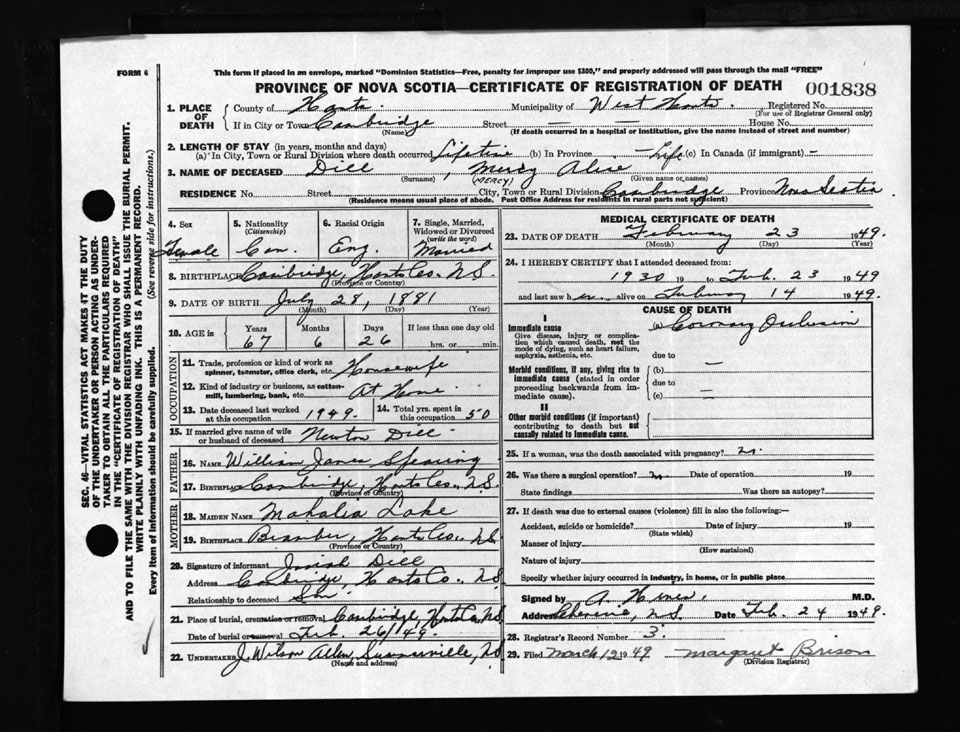 FORM 6
This form if placed in an envelope, marked "Dominion Statistics—Free, penalty for improper use $300," and properly addressed will pass through the mail "FREE"
PROVINCE OF NOVA SCOTIA—CERTIFICATE OF REGISTRATION OF DEATH 001838
1. PLACE OF DEATH
County of Hants. Municipality of West Hants. Registered No.
(For use of Registrar General only)
If in City or Town Cambridge Street — — House No.
(Name) (If death occurred in a hospital or institution, give the name instead of street and number)
2. LENGTH OF STAY (in years, months and days)
(a) In City, Town or Rural Division where death occurred Lifetime (b) In Province — Life (c) In Canada (if immigrant) —
3. NAME OF DECEASED Dill , Mercy Alice
(Surname) (MERCY) (Given name or names)
RESIDENCE No. Street City, Town or Rural Division Cambridge Province Nova Scotia
(Residence means usual place of abode. Post Office Address for residents in rural parts not sufficient)
4. Sex
Female
5. Nationality
(Citizenship)
Can.
6. Racial Origin
Eng.
7. Single, Married, Widowed or Divorced
(write the word)
Married
8. BIRTHPLACE Cambridge, Hants Co. N.S.
(Province or Country)
9. DATE OF BIRTH July 28, 1881
(Month) (Day) (Year)
10. AGE in
Years Months Days If less than one day old
67 6 26 hrs. or min.
OCCUPATION
11. Trade, profession or kind of work as spinner, teamster, office clerk, etc. Housewife
12. Kind of industry or business, as cotton-mill, lumbering, bank, etc. At Home.
13. Date deceased last worked at this occupation 1949. 14. Total yrs. spent in 50
15. If married give name of wife or husband of deceased Newton Dill.
FATHER
16. NAME William James Spearing
17. BIRTHPLACE Cambridge, Hants Co., N.S.
(Province or Country)
MOTHER
18. MAIDEN NAME Mahalia Lake
19. BIRTHPLACE Bramber, Hants Co., N.S.
(Province or Country)
20. Signature of informant Josiah Dill
Address Cambridge, Hants Co., N.S.
Relationship to deceased Son
21. Place of burial, cremation or removal Cambridge, Hants Co., N.S.
Date of burial or removal Feb. 26/49.
22. UNDERTAKER J. Wilson Allen, Summerville, N.S.
(Name and address)
MEDICAL CERTIFICATE OF DEATH
23. DATE OF DEATH February 23 1949.
(Month) (Day) (Year)
24. I HEREBY CERTIFY that I attended deceased from:
1930 19 to Feb. 23 1949
and last saw her alive on February 14 1949.
CAUSE OF DEATH
I
Immediate cause
Give disease, injury or complication which caused death, not the mode of dying, such as heart failure, asphyxia, asthenia, etc.
(a) Coronary Occlusion
due to
Morbid conditions, if any, giving rise to immediate cause (stated in order proceeding backwards from immediate cause).
(b) —
due to
(c) —
II
Other morbid conditions (if important) contributing to death but not causally related to immediate cause.
25. If a woman, was the death associated with pregnancy? no.
26. Was there a surgical operation? no Date of operation 19
State findings Was there an autopsy?
27. If death was due to external causes (violence) fill in also the following:—
Accident, suicide or homicide? Date of injury 19
(State which)
Manner of injury
(How sustained)
Nature of injury
Specify whether injury occurred in industry, in home, or in public place
Signed by M.D.
Address N.S. Date Feb. 24 1949.
28. Registrar's Record Number 3.
29. Filed March 12 1949 Margaret Brison
(Division Registrar)
SEC. 46—VITAL STATISTICS ACT MAKES IT THE DUTY
OF THE UNDERTAKER OR PERSON ACTING AS UNDER-
TAKER TO OBTAIN ALL THE PARTICULARS REQUIRED
IN THE "CERTIFICATE OF REGISTRATION OF DEATH"
AND TO FILE THE SAME WITH THE DIVISION REGISTRAR WHO SHALL ISSUE THE BURIAL PERMIT.
WRITE PLAINLY WITH UNFADING INK. THIS IS A PERMANENT RECORD.
Every item of information should be carefully supplied. (See reverse side for instructions.)